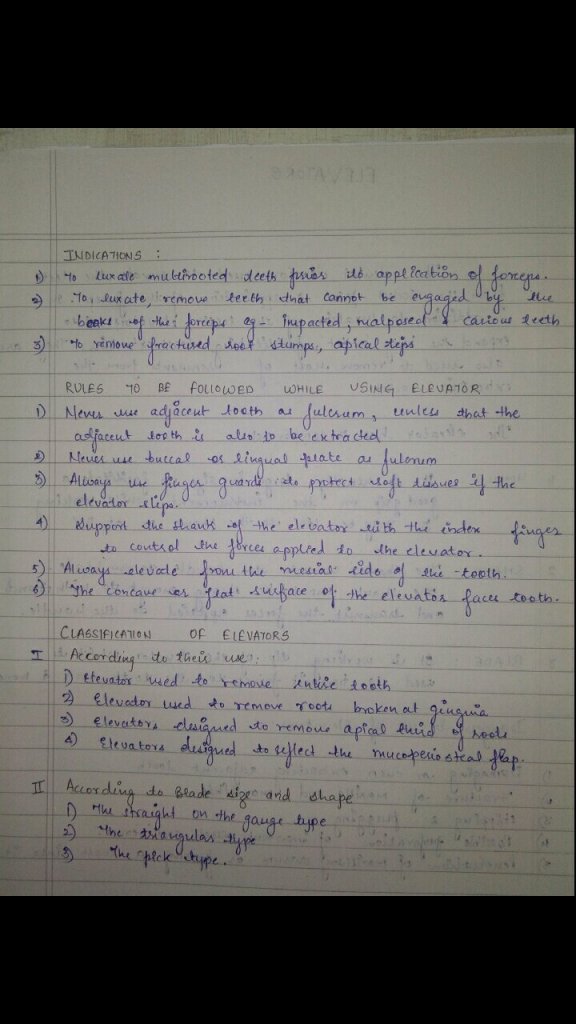 INDICATIONS :
1) To luxate multirooted teeth prior to application of forceps.
2) To, luxate, remove teeth that cannot be engaged by the
beaks of the forceps eg - impacted, malposed & carious teeth
3) To remove fractured root stumps, apical tips
RULES TO BE FOLLOWED WHILE USING ELEVATOR
1) Never use adjacent tooth as fulcrum, unless that the
adjacent tooth is also to be extracted
2) Never use buccal or lingual plate as fulcrum
3) Always use finger guards to protect soft tissues if the
elevator slips.
4) Support the shank of the elevator with the index finger
to control the forces applied to the elevator.
5) Always elevate from the mesial side of the tooth.
6) The concave or flat surface of the elevator faces tooth.
CLASSIFICATION OF ELEVATORS
I According to their use:
1) Elevator used to remove entire tooth
2) Elevator used to remove roots broken at gingiva
3) Elevators designed to remove apical third of roots
4) Elevators designed to reflect the mucoperiosteal flap.
II According to Blade size and shape
1) The straight on the gauge type
2) The triangular type
3) The pick type.